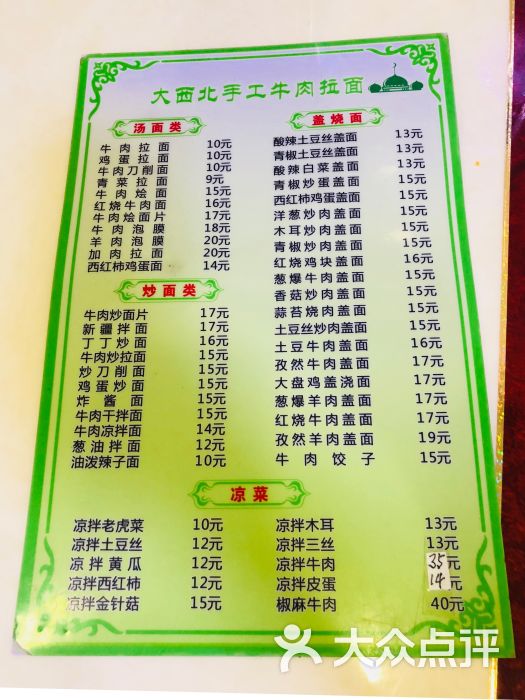 大西北手工牛肉拉面
汤面类
牛肉拉面 10元
鸡蛋拉面 10元
牛肉刀削面 10元
青菜拉面 9元
牛肉烩面 15元
红烧牛肉面 16元
牛肉烩面片 17元
牛肉泡膜 18元
羊肉泡膜 20元
加肉拉面 20元
西红柿鸡蛋面 14元
炒面类
牛肉炒面片 17元
新疆拌面 17元
丁丁炒面 16元
牛肉炒拉面 15元
炒刀削面 15元
鸡蛋炒面 15元
炸酱面 15元
牛肉干拌面 15元
牛肉凉拌面 14元
葱油拌面 12元
油泼辣子面 10元
盖烧面
酸辣土豆丝盖面 13元
青椒土豆丝盖面 13元
酸辣白菜盖面 13元
青椒炒蛋盖面 15元
西红柿鸡蛋盖面 15元
洋葱炒肉盖面 15元
木耳炒肉盖面 15元
青椒炒肉盖面 15元
红烧鸡块盖面 16元
葱爆牛肉盖面 15元
香菇炒肉盖面 15元
蒜苔烧肉盖面 15元
土豆丝炒肉盖面 15元
土豆牛肉盖面 16元
孜然牛肉盖面 17元
大盘鸡盖浇面 17元
葱爆羊肉盖面 17元
红烧牛肉盖面 17元
孜然羊肉盖面 19元
牛肉饺子 15元
凉菜
凉拌老虎菜 10元
凉拌土豆丝 12元
凉拌黄瓜 12元
凉拌西红柿 12元
凉拌金针菇 15元
凉拌木耳 13元
凉拌三丝 13元
凉拌牛肉 35元
凉拌皮蛋 14元
椒麻牛肉 40元
大众点评